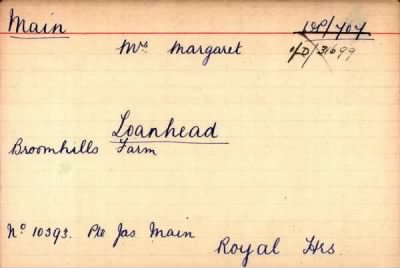 Main
Mrs Margaret
Loanhead
Broomhills Farm
No 10393. Pte Jas Main
Royal Hrs.